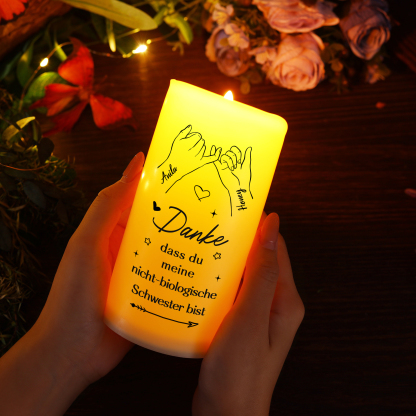 Danke
dass du
meine
nicht-biologische
Schwester bist